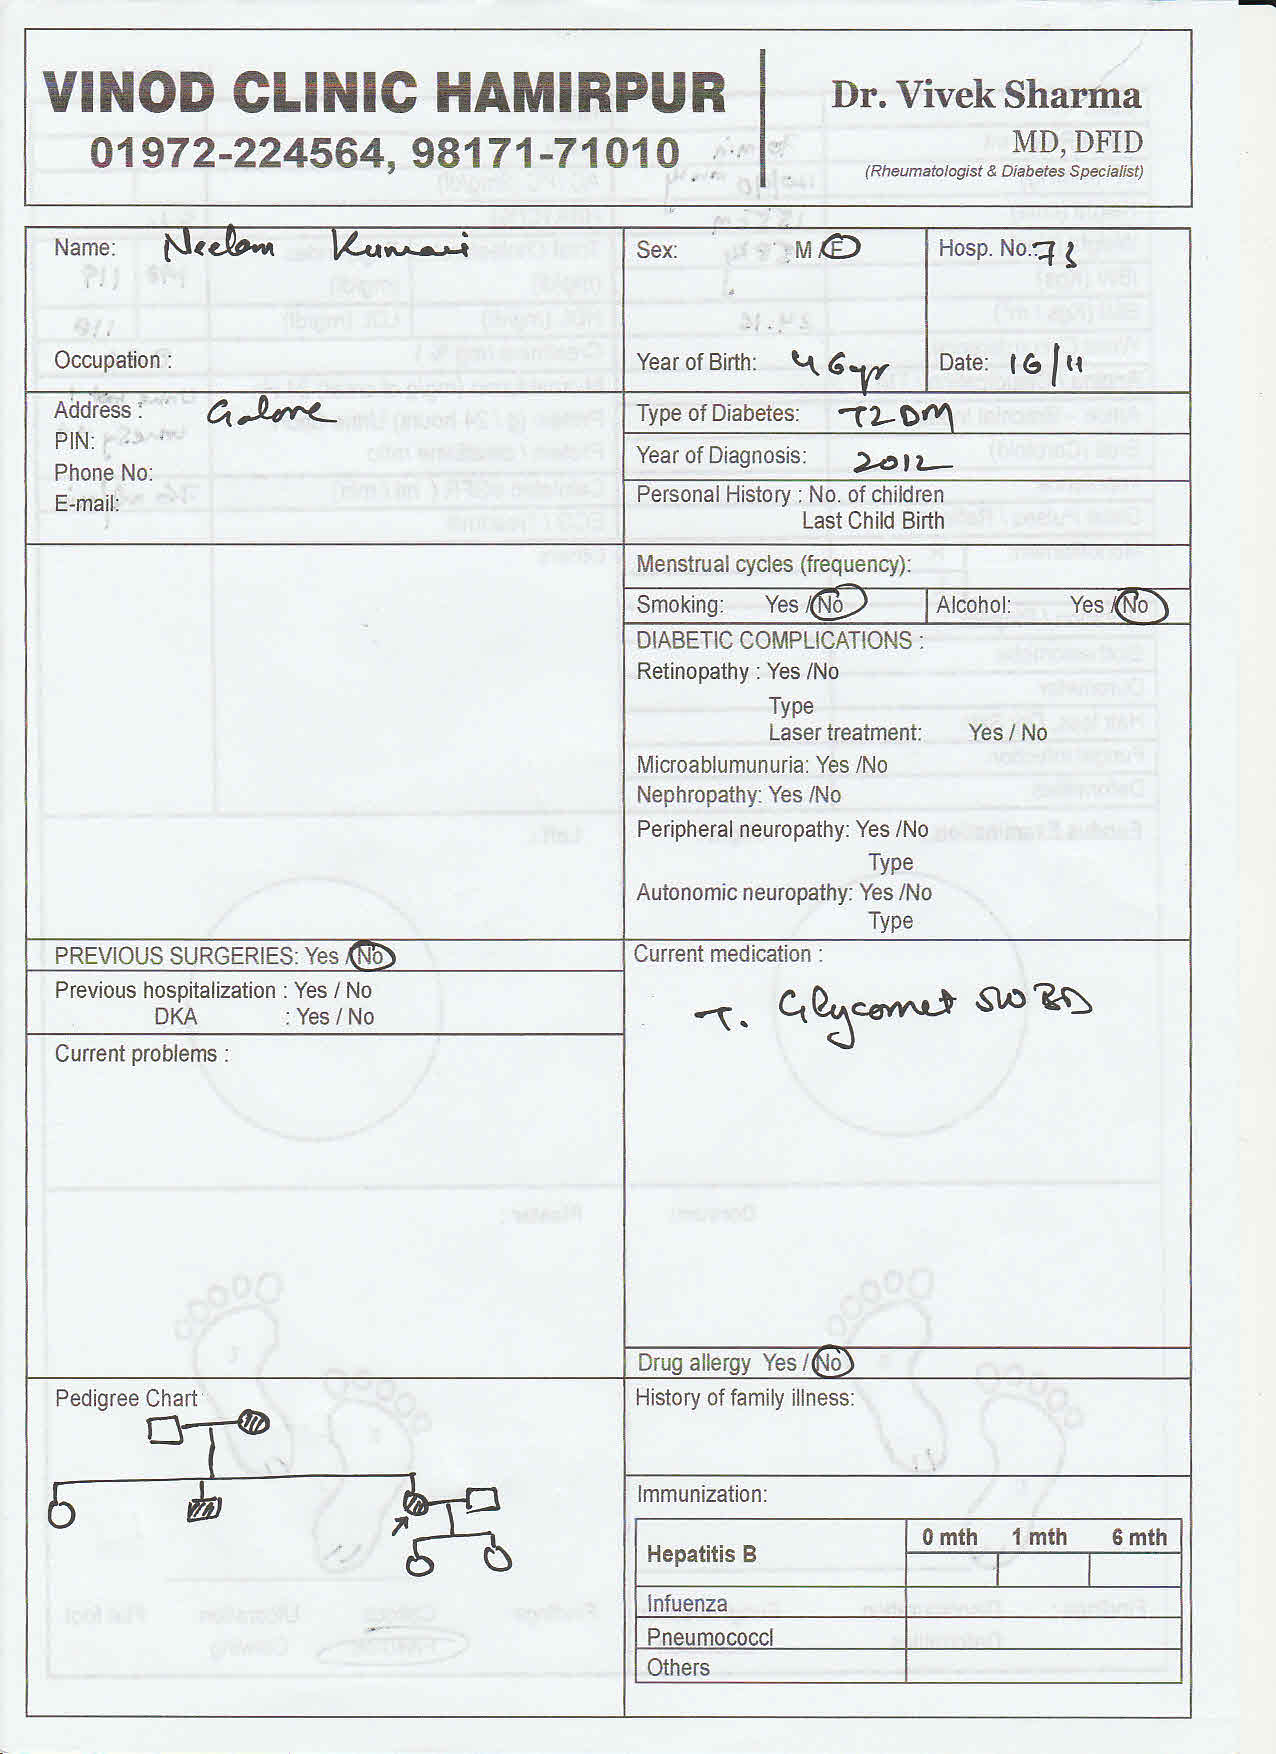 VINOD CLINIC HAMIRPUR
01972-224564, 98171-71010
Dr. Vivek Sharma
MD, DFID
(Rheumatologist & Diabetes Specialist)
Name: Neelam Kumari
Sex: M / F
Hosp. No.: 73
Occupation :
Year of Birth: 46yr
Date: 16/11
Address : Galore
PIN:
Phone No:
E-mail:
Type of Diabetes: T2DM
Year of Diagnosis: 2012
Personal History : No. of children
Last Child Birth
Menstrual cycles (frequency):
Smoking: Yes / No
Alcohol: Yes / No
DIABETIC COMPLICATIONS :
Retinopathy : Yes /No
Type
Laser treatment: Yes / No
Microablumunuria: Yes /No
Nephropathy: Yes /No
Peripheral neuropathy: Yes /No
Type
Autonomic neuropathy: Yes /No
Type
PREVIOUS SURGERIES: Yes / No
Previous hospitalization : Yes / No
DKA : Yes / No
Current problems :
Current medication :
T. Glycomet BD
Drug allergy Yes / No
Pedigree Chart
History of family illness:
Immunization:
Hepatitis B 0 mth 1 mth 6 mth
Infuenza
Pneumococcl
Others